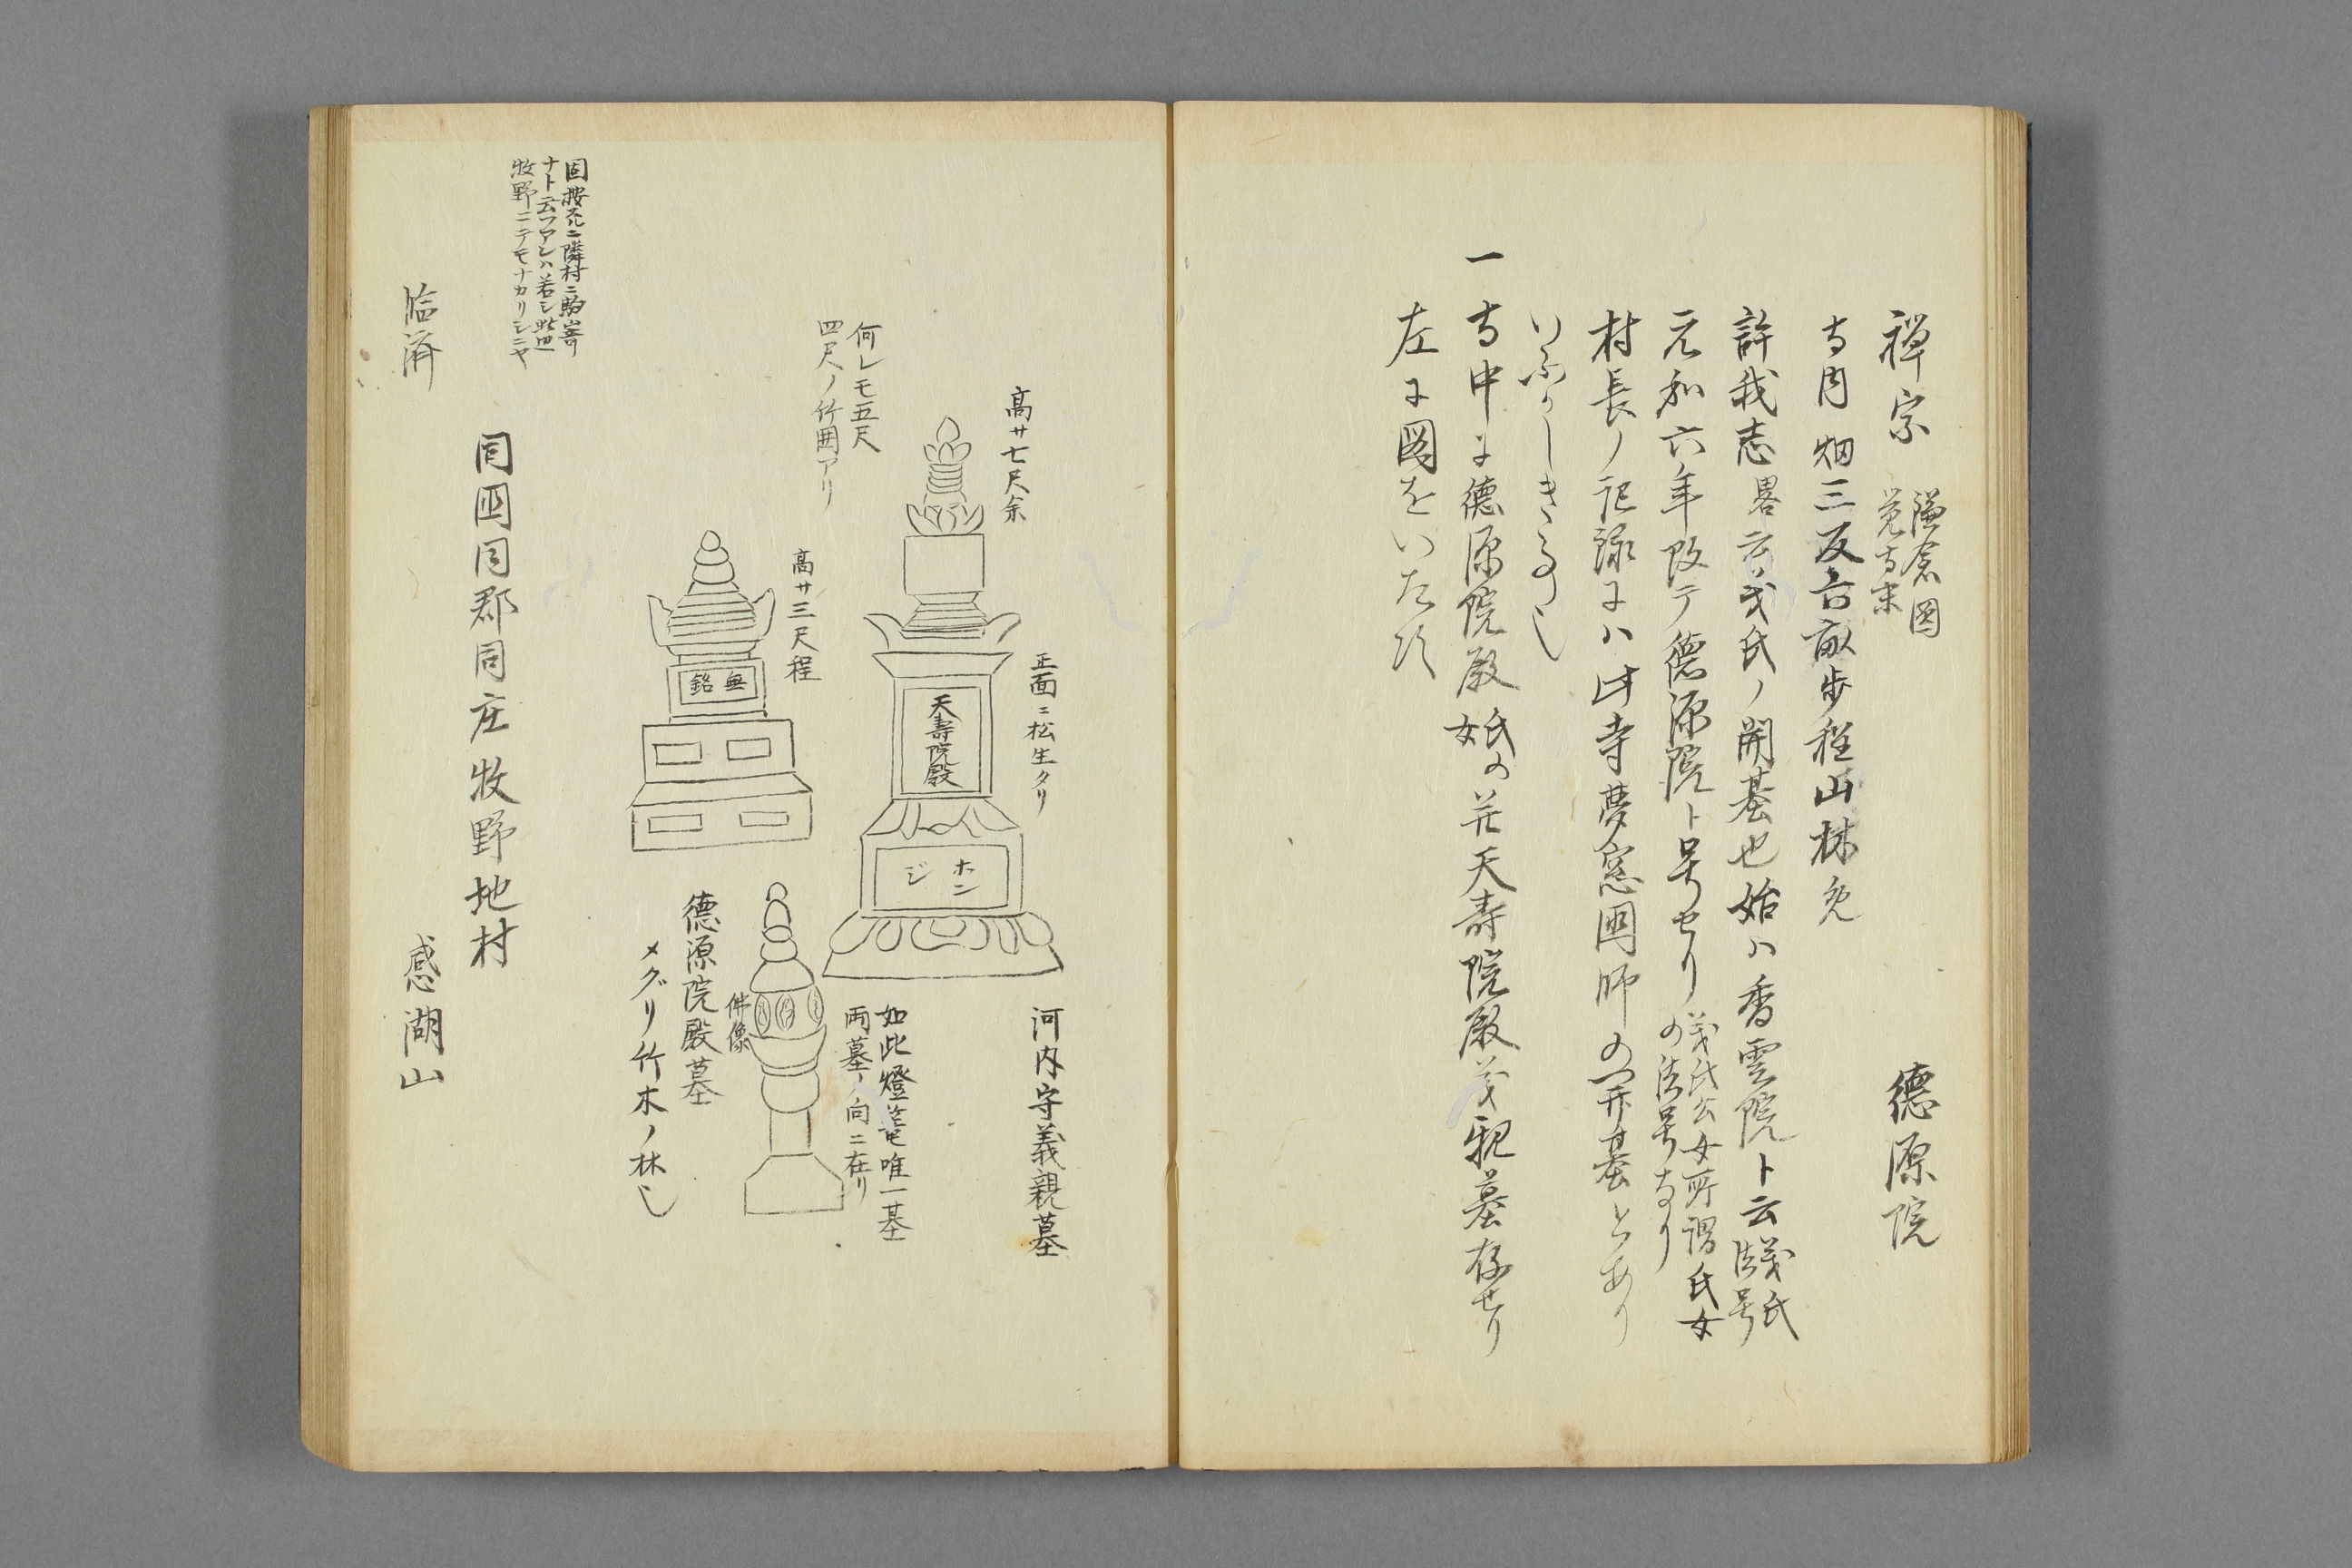 禅宗 鎌倉圓
覚寺末 徳源院
寺内畑三反六畝歩程山林免
許我志畧云義氏ノ開基也始ハ香雲院ト云義氏
法号
元和六年改テ徳源院ト号せり義氏公女所謂氏女
の法号なり
村長ノ記録にハ此寺夢窓国師の開基とあり
いふかしき事也
一寺中に徳源院殿氏女の并天壽院殿義親墓存せり
左に図をいたす
高サ七尺余
正面ニ松生タリ
河内守義親墓
天壽院殿
ホン
ジ
何レモ五尺
四尺ノ竹囲アリ
如此燈篭唯一基
両墓ノ向ニ在リ
高サ三尺程
無銘
佛像
徳源院殿墓
メグリ竹木ノ林也
因按スルニ隣村ニ駒嵜
ナト云フアレハ若シ此邊
牧野ニテモナカリシニヤ
同国同郡同庄牧野地村
臨済 感湖山